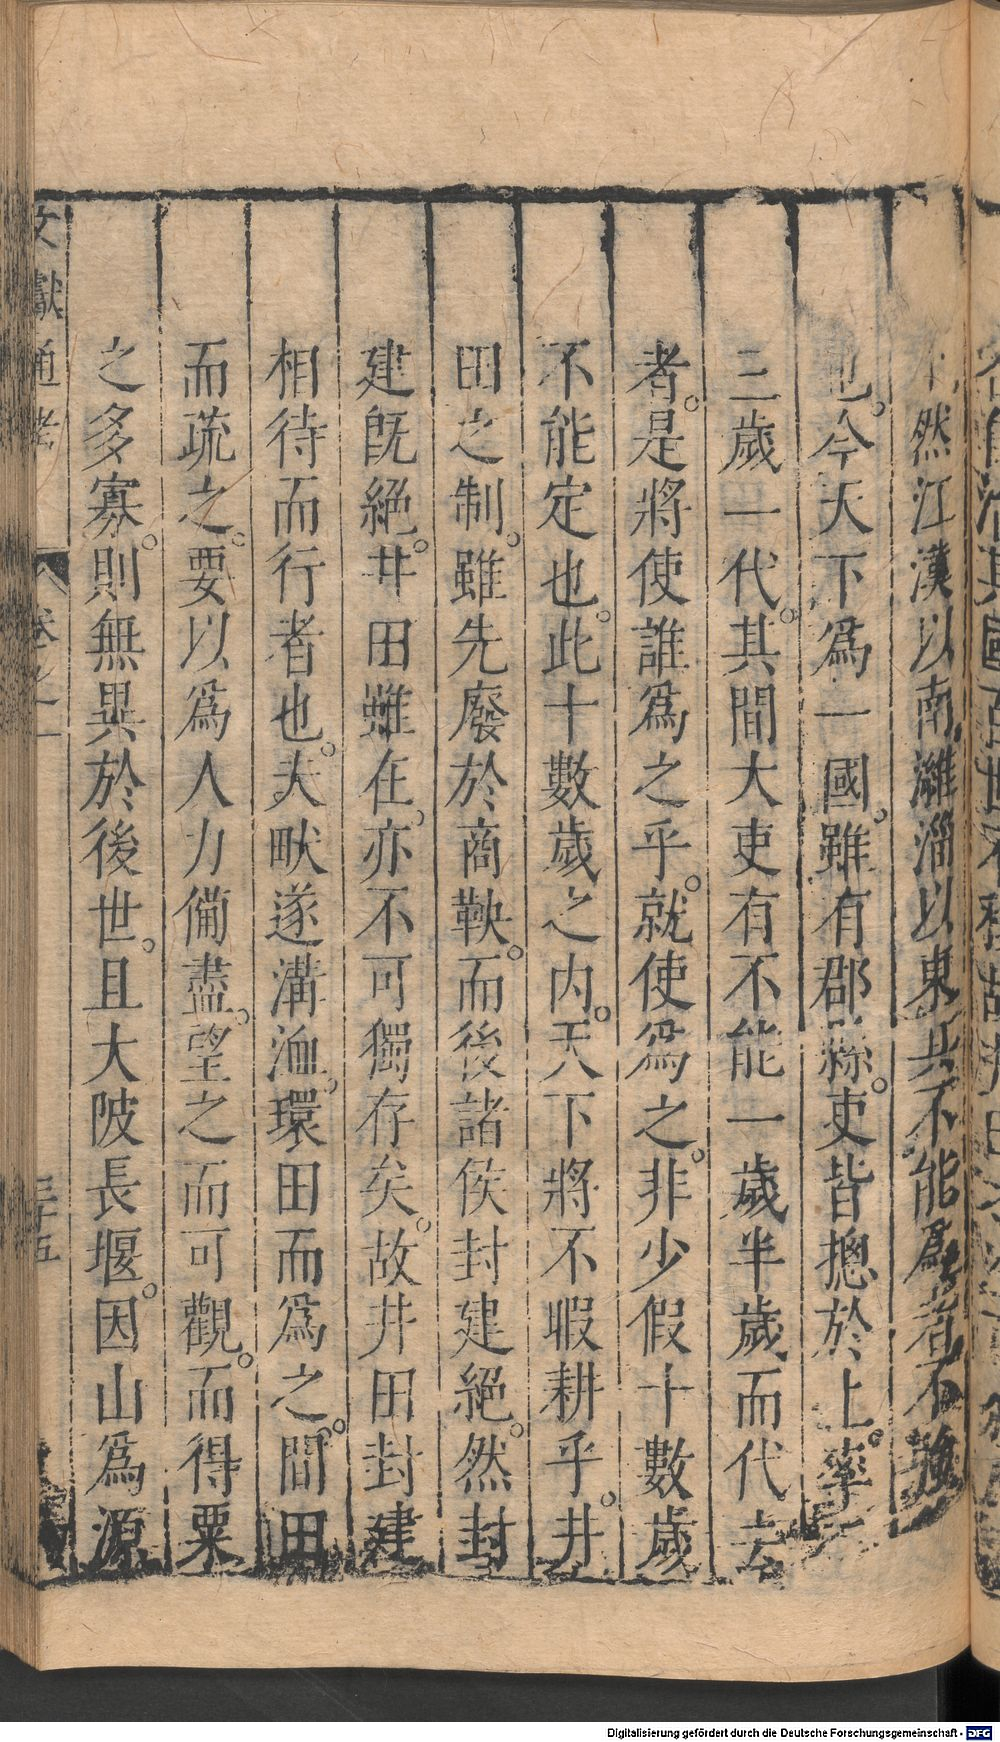 然江漢以南濰淄以東其不能爲者不強
也。今天下爲一國。雖有郡縣。吏皆摠於上。率二
三歲一代。其間大吏有不能一歲半歲而代去
者。是將使誰爲之乎。就使爲之。非少假十數歲
不能定也。此十數歲之内。天下將不暇耕乎。井
田之制。雖先廢於商鞅。而後諸侯封建絕。然封
建旣絕。井田雖在。亦不可獨存矣。故井田封建
相待而行者也。夫畎遂溝洫。環田而爲之。間田
而疏之。要以爲人力備盡。望之而可觀。而得粟
之多寡。則無異於後世。且大陂長堰。因山爲源
文獻通考 卷之一 三十五
Digitalisierung gefördert durch die Deutsche Forschungsgemeinschaft - DFG